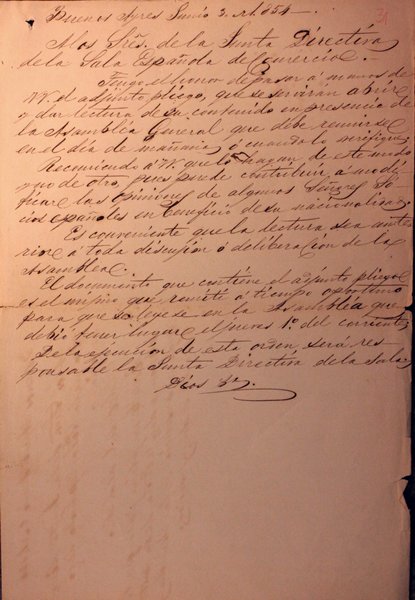 Buenos Ayres Junio 2 de 1854.
31
A los Sres. de la Junta Directiva
de la Sala Española de Comercio.
Tengo el honor de pasar á manos de
VV. el adjunto pliego, que se servirán abrir
y dar lectura de su contenido en presencia de
la Asamblea General que debe reunirse
en el día de mañana ó cuando lo verifique.
Recomiendo á VV. que lo hagan de este modo
y no de otro, pues puede contribuir á modi-
ficar las opiniones de algunos Señores So-
cios españoles en beneficio de su nacionalidad.
Es conveniente que la lectura sea ante-
rior á toda discusion ó deliberacion de la
Asamblea.
El documento que contiene el adjunto pliego
es el mismo que remití á tiempo oportuno
para que se leyese en la Asamblea que
debió tener lugar el Jueves 1º del corriente.
De la ejecucion de esta orden será res
ponsable la Junta Directiva de la Sala.
Dios &a.